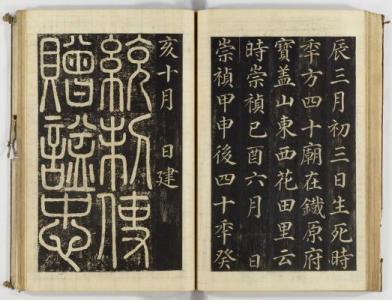 辰三月初三日生死時
年方四十廟在鐵原府
寶盖山東西花田里云
時崇禎己酉六月 日
崇禎甲申後四十年癸
亥十月 日建
統制使
贈諡忠